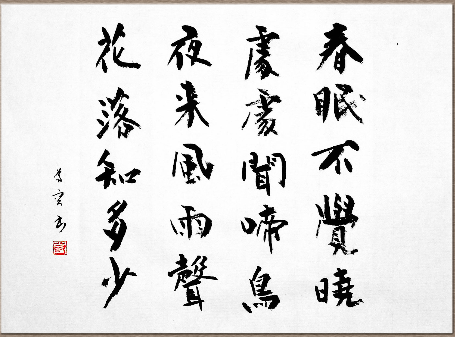 春眠不覺曉
處處聞啼鳥
夜来風雨聲
花落知多少